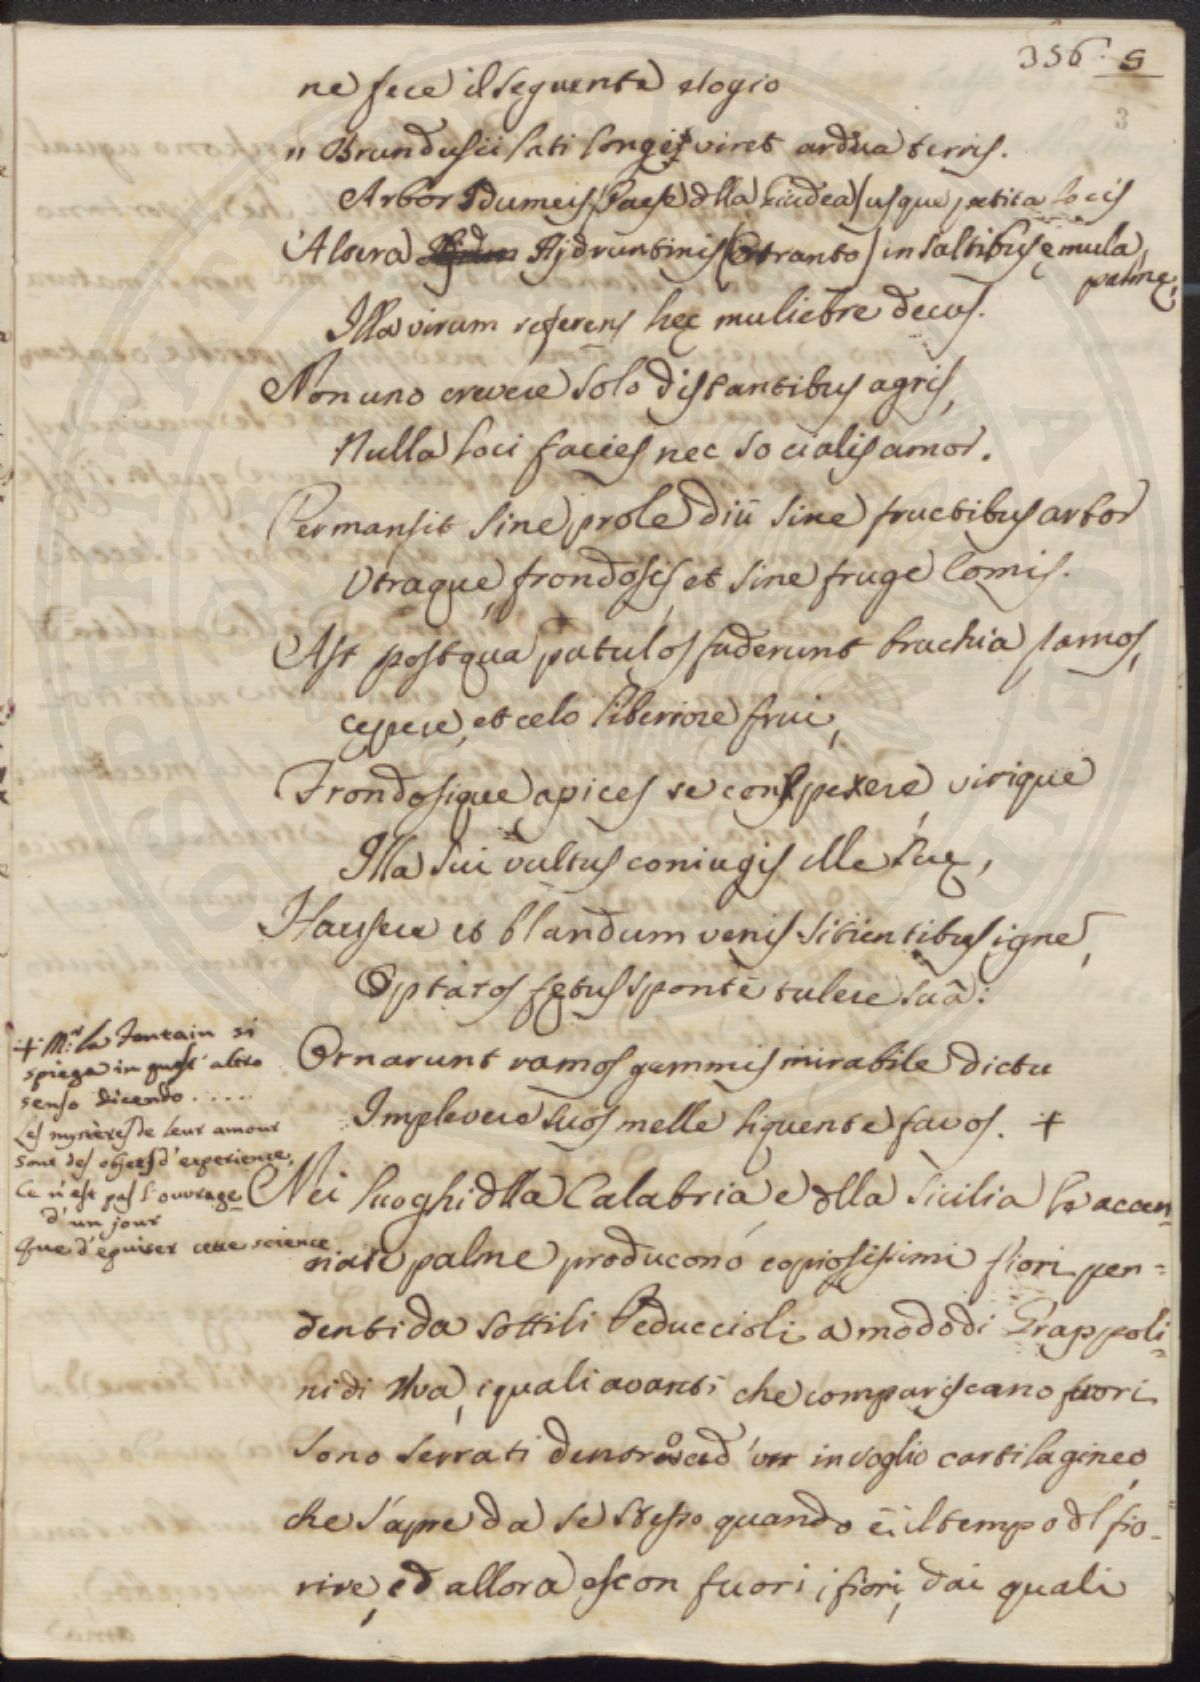 356. 5
3
ne fece il seguente elogio
" Brundusii lati longe viret ardua terris.
Arbor Idumeis (Paese dlla Giudea) usque petita locis
Altera Hjdruntinis (Otranto) in saltibus ęmula
palmę,
Illa virum referens hęc muliebre decus.
Non uno crevere solo distantibus agris,
Nulla loci facies nec socialis amor.
Permansit sine prole diū sine fructibus arbor
Utraque, frondosis, et sine fruge comis.
Ast postqua patulos fuderunt brachia ramos,
cępere, et celo liberiore frui,
Frondosique apices se conspexere, virique
Illa sui vultus coniugis ille suę,
Hausere et blandum venis sitientibus igne,
Optatos fętus sponte tulere suâ:
Ornarunt ramos gemmis mirabile dictu
Implevere suos melle liquente favos. +
+ Mr. la Fontain si
spiega in quest' altro
senso dicendo.....
Les mystères de leur amour
sont des objets d'experience,
Ce n'est pas l'ouvrage
d'un jour
Que d'epuiser cette science
Nei luoghi dlla Calabria e dlla Sicilia le accen-
nate palme producono copiosissimi fiori pen=
denti da sottili Peduccioli a modo di Grappoli=
ni di Uva, i quali avanti che compariscano fuori
sono serrati dentro ad un invoglio cartilagineo,
che s'apre da se stesso quando è il tempo dl fio-
rire, ed allora escon fuori i fiori, dai quali